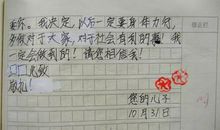 爸你。我决定，以后一定要身体力行，
多做对于大家，对于社会有利的事。我
一定会做到的！请您相信我！
此致
敬礼！
您的儿子
10月31日